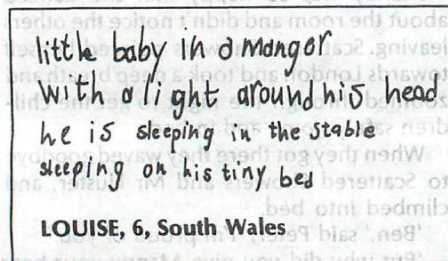 little baby in a manger
with a light around his head
he is sleeping in the stable
sleeping on his tiny bed
LOUISE, 6, South Wales